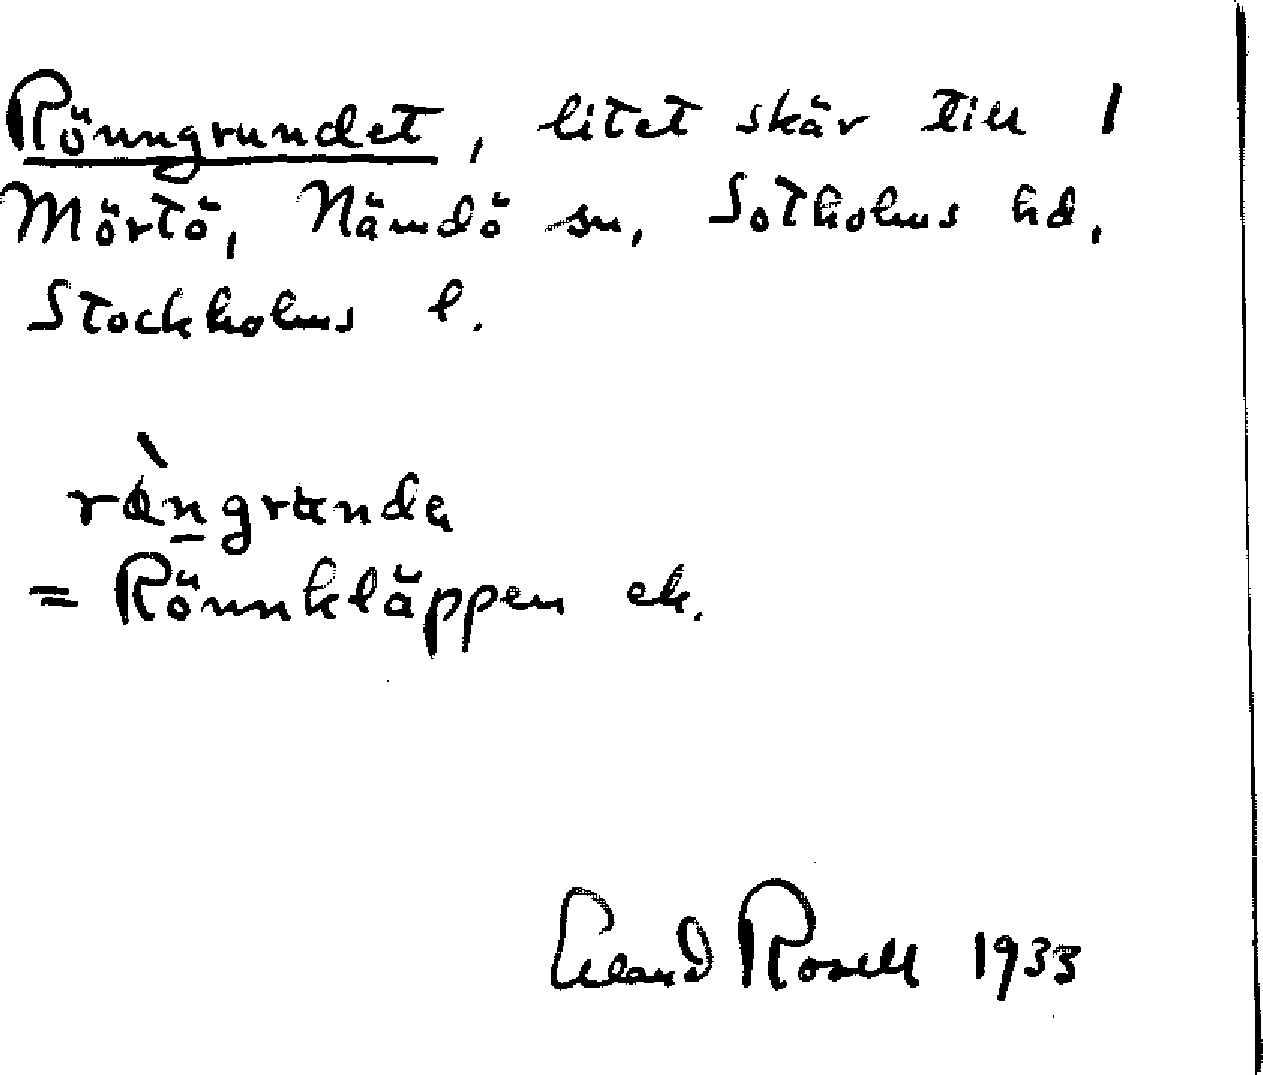 Rönngrundet, litet skär till 1
Mörtö, Nämdö sn, Sotholms hd,
Stockholms l.
rὰngrunda
= Rönnkläppen ek.
Erland Rosell 1933